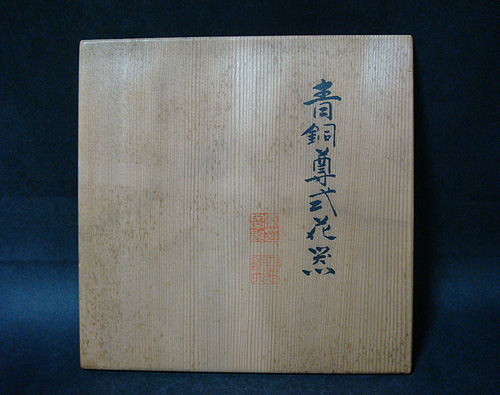 青銅尊式花器